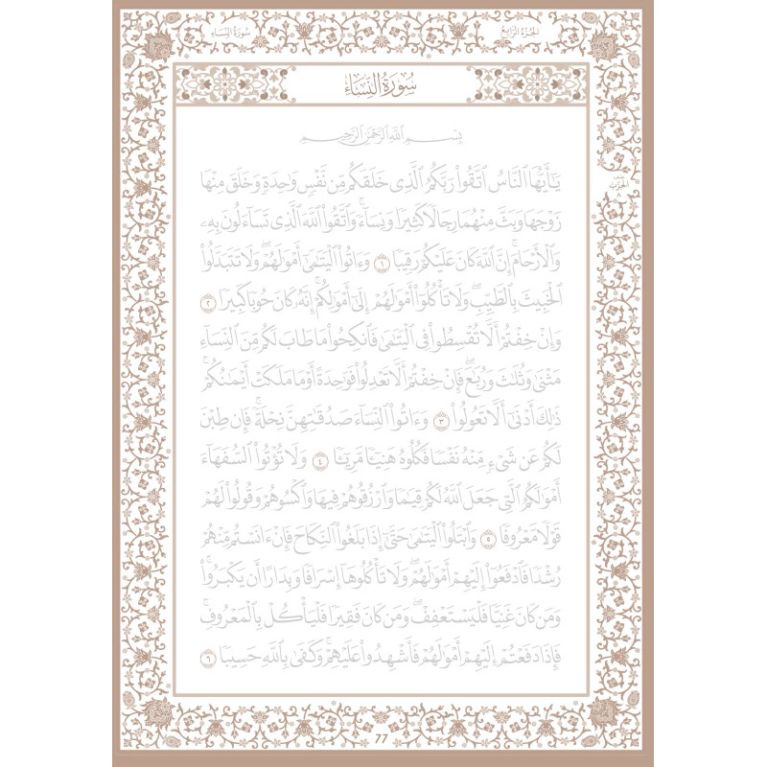 سُورَةُ النِّسَاءِ
الجُزْءُ الرَّابِعُ
سُورَةُ النِّسَاءِ
بِسْمِ ٱللَّهِ ٱلرَّحْمَٰنِ ٱلرَّحِيمِ
يَٰٓأَيُّهَا ٱلنَّاسُ ٱتَّقُوا۟ رَبَّكُمُ ٱلَّذِى خَلَقَكُم مِّن نَّفْسٍ وَٰحِدَةٍ وَخَلَقَ مِنْهَا
زَوْجَهَا وَبَثَّ مِنْهُمَا رِجَالًا كَثِيرًا وَنِسَآءً ۚ وَٱتَّقُوا۟ ٱللَّهَ ٱلَّذِى تَسَآءَلُونَ بِهِۦ
وَٱلْأَرْحَامَ ۚ إِنَّ ٱللَّهَ كَانَ عَلَيْكُمْ رَقِيبًا ١ وَءَاتُوا۟ ٱلْيَتَٰمَىٰٓ أَمْوَٰلَهُمْ ۖ وَلَا تَتَبَدَّلُوا۟
ٱلْخَبِيثَ بِٱلطَّيِّبِ ۖ وَلَا تَأْكُلُوٓا۟ أَمْوَٰلَهُمْ إِلَىٰٓ أَمْوَٰلِكُمْ ۚ إِنَّهُۥ كَانَ حُوبًا كَبِيرًا ٢
وَإِنْ خِفْتُمْ أَلَّا تُقْسِطُوا۟ فِى ٱلْيَتَٰمَىٰ فَٱنكِحُوا۟ مَا طَابَ لَكُم مِّنَ ٱلنِّسَآءِ
مَثْنَىٰ وَثُلَٰثَ وَرُبَٰعَ ۖ فَإِنْ خِفْتُمْ أَلَّا تَعْدِلُوا۟ فَوَٰحِدَةً أَوْ مَا مَلَكَتْ أَيْمَٰنُكُمْ ۚ
ذَٰلِكَ أَدْنَىٰٓ أَلَّا تَعُولُوا۟ ٣ وَءَاتُوا۟ ٱلنِّسَآءَ صَدُقَٰتِهِنَّ نِحْلَةً ۚ فَإِن طِبْنَ
لَكُمْ عَن شَىْءٍ مِّنْهُ نَفْسًا فَكُلُوهُ هَنِيٓـًٔا مَّرِيٓـًٔا ٤ وَلَا تُؤْتُوا۟ ٱلسُّفَهَآءَ
أَمْوَٰلَكُمُ ٱلَّتِى جَعَلَ ٱللَّهُ لَكُمْ قِيَٰمًا وَٱرْزُقُوهُمْ فِيهَا وَٱكْسُوهُمْ وَقُولُوا۟ لَهُمْ
قَوْلًا مَّعْرُوفًا ٥ وَٱبْتَلُوا۟ ٱلْيَتَٰمَىٰ حَتَّىٰٓ إِذَا بَلَغُوا۟ ٱلنِّكَاحَ فَإِنْ ءَانَسْتُم مِّنْهُمْ
رُشْدًا فَٱدْفَعُوٓا۟ إِلَيْهِمْ أَمْوَٰلَهُمْ ۖ وَلَا تَأْكُلُوهَآ إِسْرَافًا وَبِدَارًا أَن يَكْبَرُوا۟ ۚ
وَمَن كَانَ غَنِيًّا فَلْيَسْتَعْفِفْ ۖ وَمَن كَانَ فَقِيرًا فَلْيَأْكُلْ بِٱلْمَعْرُوفِ ۚ
فَإِذَا دَفَعْتُمْ إِلَيْهِمْ أَمْوَٰلَهُمْ فَأَشْهِدُوا۟ عَلَيْهِمْ ۚ وَكَفَىٰ بِٱللَّهِ حَسِيبًا ٦
77